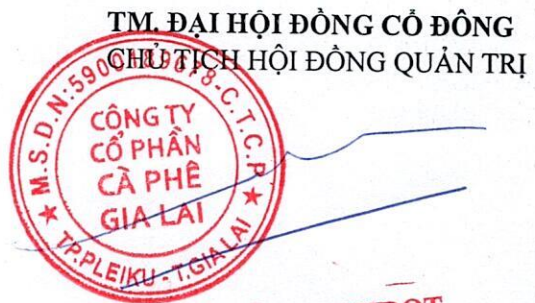 TM. ĐẠI HỘI ĐỒNG CỔ ĐÔNG
CHỦ TỊCH HỘI ĐỒNG QUẢN TRỊ
CÔNG TY
CỔ PHẦN
CÀ PHÊ
GIA LAI
TP.PLEIKU - T.GIA LAI